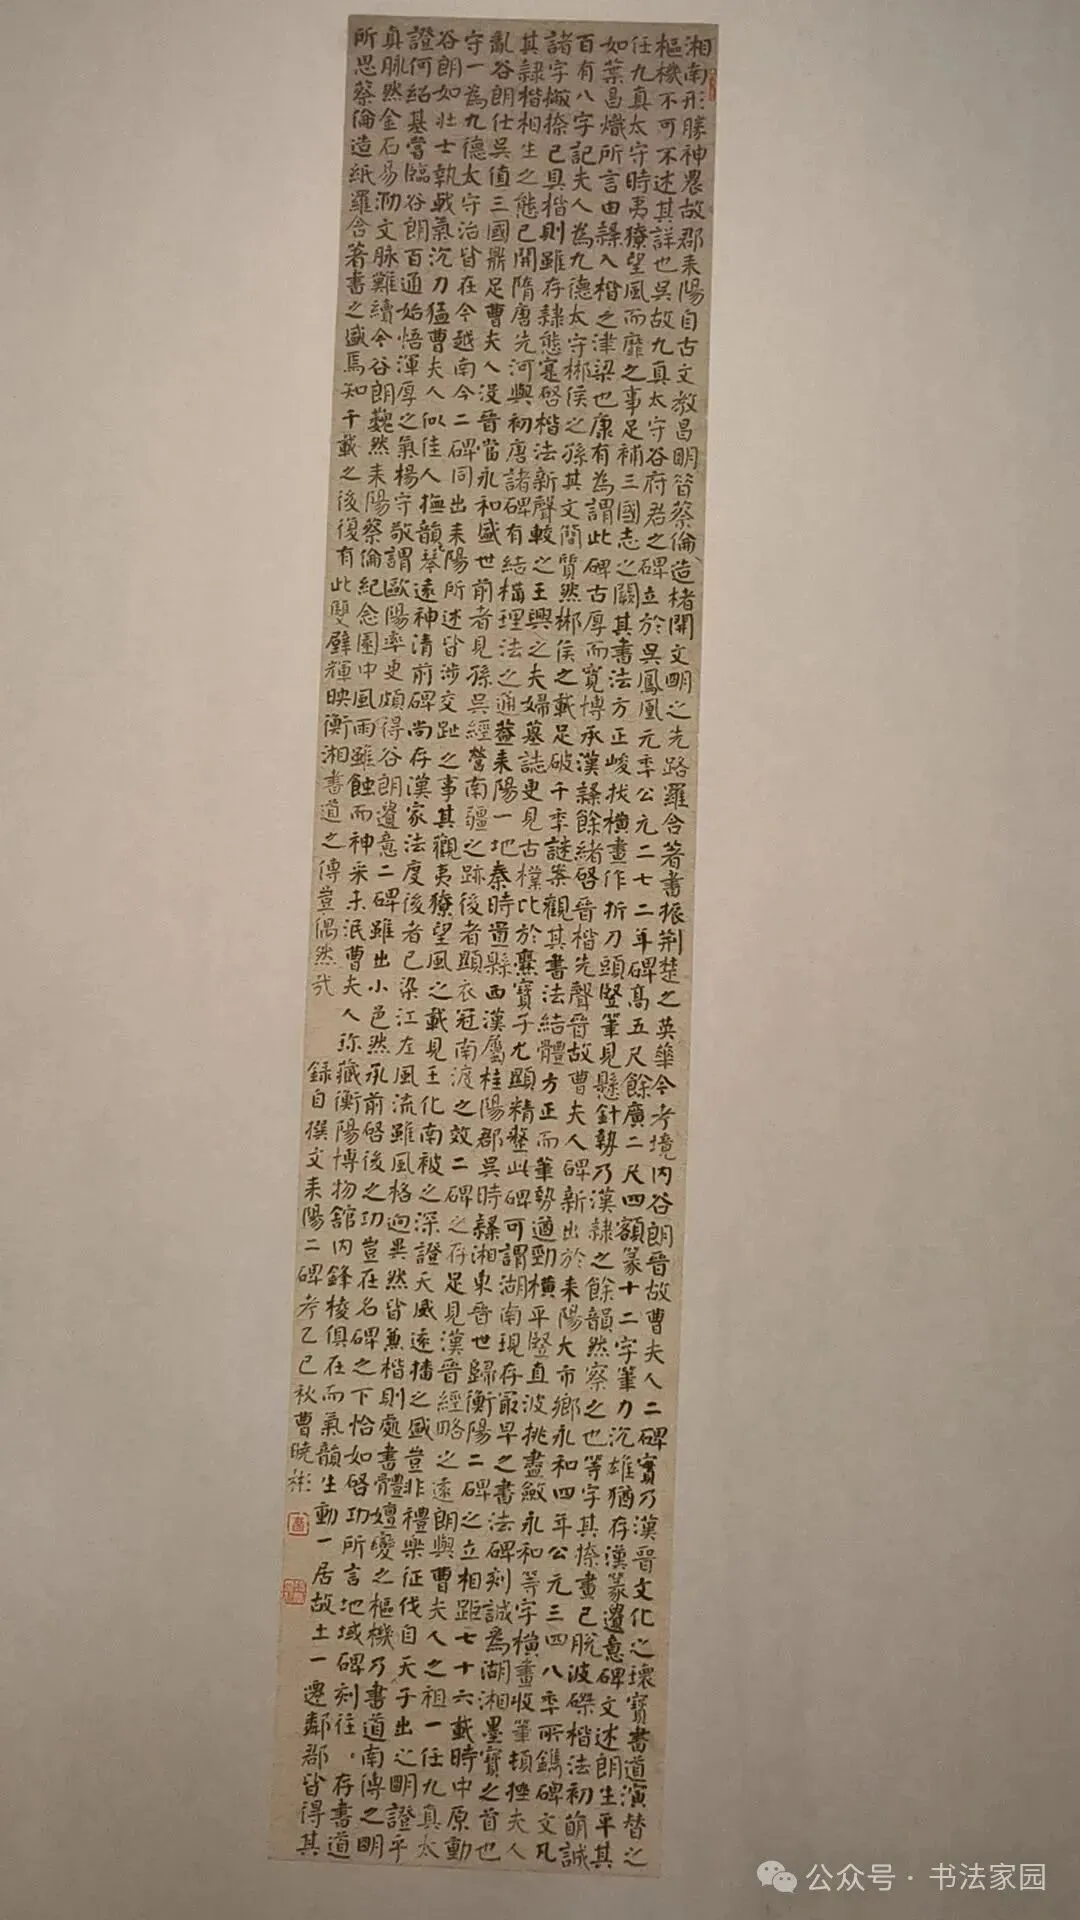 湘南形勝神農故郡耒陽自古文教昌明管蔡倫造楮開文明之先路羅含著書振荊楚之英華今考境内谷朗晉故曹夫人二碑實乃漢晉文化之瓌寶書道演替之
樞機不可不述其詳也吳故九真太守谷府君之碑立於吳鳳凰元季公元二七二年碑高五尺餘廣二尺四額篆十二字筆力沉雄猶存漢篆遺意碑文述朗生平其
任九真太守時夷獠望風而靡之事足補三國志之闕其書法方正峻拔橫畫作折刀頭豎筆見懸針勢乃漢隸之餘韻然察之也等字其捺畫已脫波磔楷法初萌誠
如葉昌熾所言由隸入楷之津梁也康有為謂此碑古厚而寬博承漢隸餘緒啓晉楷先聲晉故曹夫人碑新出於耒陽大市鄉永和四年公元三四八季所鐫碑文凡
百有八字記夫人為九德太守郴侯之孫其文簡質然郴侯之載足破千季謎案觀其書法結體方正而筆勢遒勁橫平豎直波挑盡斂永和等字橫畫收筆頓挫夫人
諸字撇捺已具楷則雖存隸態寔啓楷法新聲較之王興之夫婦墓誌更見古樸比於爨寶子尤顯精整此碑可謂湖南現存最早之書法碑刻誠為湖湘墨寶之首也
其隸楷相生之態已開隋唐先河與初唐諸碑有結構理法之通葢耒陽一地秦時置縣西漢屬桂陽郡吳時隸湘東晉世歸衡陽二碑之立相距七十六載時中原動
亂谷朗仕吳值三國鼎足曹夫人没晉當永和盛世前者見孫吳經營南疆之跡後者顯衣冠南渡之效二碑之存足見漢晉經略之遠朗與曹夫人之祖一任九真太
守一為九德太守治皆在今越南今二碑同出耒陽所述皆涉交趾之事其觀夷獠望風之載見王化南被之深證天威遠播之盛豈非禮樂征伐自天子出之明證乎
谷朗如壯士執戟氣沉力猛曹夫人似佳人撫韻琴遠神清前碑尚存漢家法度後者已染江左風流雖風格迥異然皆兼楷則處書體嬗變之樞機乃書道南傳之明
證何紹基嘗臨谷朗百通始悟渾厚之氣楊守敬謂歐陽率更頗得谷朗遺意二碑雖出小邑然承前啓後之功豈在名碑之下恰如啓功所言地域碑刻往〻存書道
真脉然金石易泐文脉難續今谷朗巍然耒陽蔡倫紀念園中風雨雖蝕而神采未泯曹夫人珎藏衡陽博物館内鋒棱俱在而氣韻生動一居故土一遷鄰郡皆得其
所思蔡倫造紙羅含著書之盛焉知千載之後復有此雙璧輝映衡湘書道之傳豈偶然哉
録自撰文耒陽二碑考乙巳秋曹曉彬
公众号·书法家园